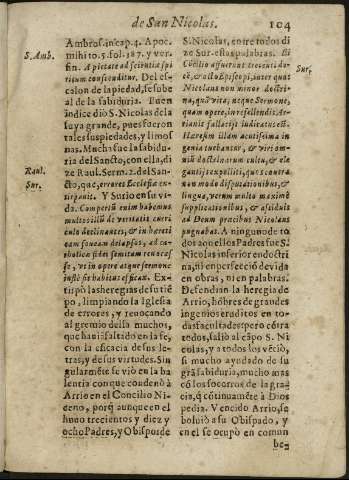 de San Nicolas.
104
S. Amb.
Raul.
Sur.
Ambros. in cap. 4. Apoc.
mihi to. 5. fol. 187. y ver-
sin. A pietate ad scientia spi
ritum conscenditur. Del es-
calon de la piedad, se sube
al de la sabiduria. Tuen
indice dio S. Nicolas de la
suya grande, pues fue con
tales piedades, y limos
nas. Mucha fue la sabidu
ria del Sancto, con ella, di-
ze Raul. Serm. 2. del San-
cto, que, errores Ecclesiæ ex-
tirpauit. Y Surio en su vi
da. Compertũ enim habemus
multos illũ de veritatis curri
culo declinantes, & in hæreti
cam foueam delapsos, ad ca-
tholicæ fidei semitam reuocas
se, vt in opere atque sermone
iustè sit habitus efficax. Ex-
tirpò las heregias de su tiē
po, limpiando la Iglesia
de errores, y reuocando
al gremio della muchos,
que hauiã faltado en la fe,
con la eficacia de sus le-
tras, y de sus virtudes. Sin
gularmēte se vio en la ba
lentia con que condenò à
Arrio en el Concilio Ni-
ceno, porq̃ aunque en el
huuo trecientos y diez y
ocho Padres, y Obispos de
S. Nicolas, entre todos di
ze Sur. estas palabras. Ei
Cōcilio affuerunt trecenti de-
cē, & octo Episcopi, inter quos
Nicolaus non minor doctri-
na, quã vita; neque Sermone,
quam opere, in refellendis Ar-
rianis fallaciis iudicatus est.
Hæresim illam acutissima in-
genia tuebantur, & viri om-
niũ doctrinarum cultu, & ele
gantia expoliti, quos contra
non modo disputationibus, &
lingua, verum multo maximè
supplicationibus, & assiduis
ad Deum precibus Nicolaus
pugnabat. A ninguno de to
dos aquellos Padres fue S.
Nicolas inferior en doctri
na, ni en perfecciō de vida
en obras, ni en palabras.
Defendian la heregia de
Arrio, hõbres de grandes
ingenios eruditos en to-
das facultades: pero cõtra
todos, salio al cãpo S. Ni
colas, y a todos los vēciò,
si mucho ayudado de su
grã sabiduria, mucho mas
cō los socorros de la gra-
cia, q̃ cōtinuamēte à Dios
pedia. Vencido Arrio, se
boluiò a su Obispado, y
en el se ocupò en comun
be-
Sur.